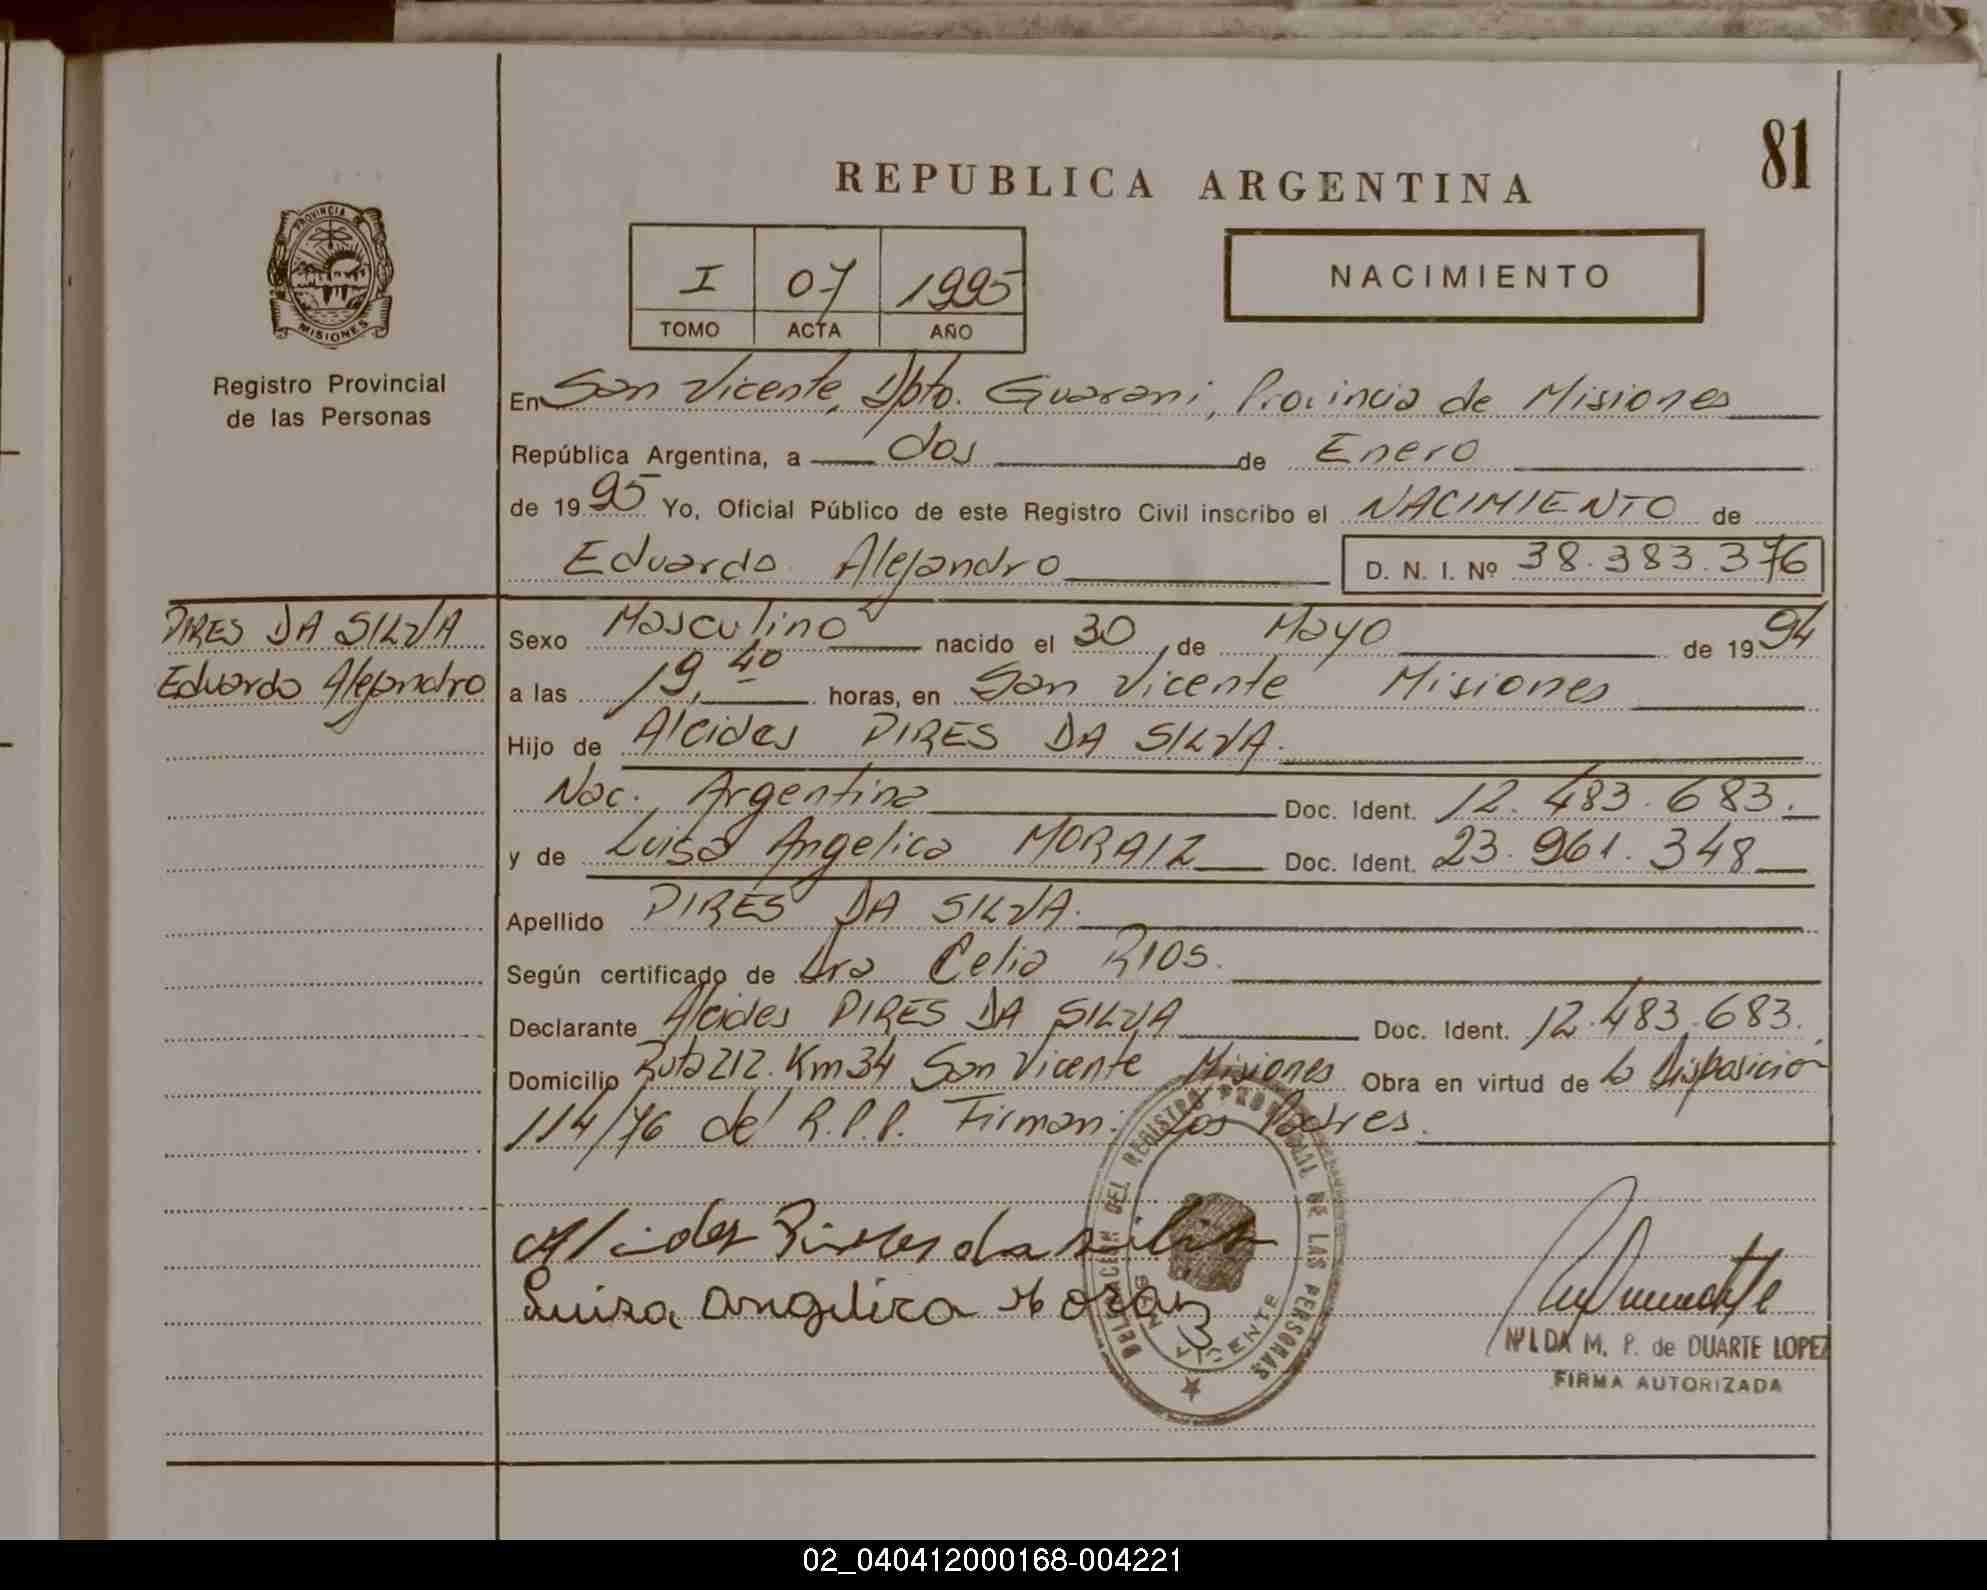 81
REPUBLICA ARGENTINA
PROVINCIA DE
MISIONES
I 07 1995
TOMO ACTA AÑO
NACIMIENTO
Registro Provincial
de las Personas
En San Vicente, Dpto. Guarani, Provincia de Misiones
República Argentina, a dos de Enero
de 1995 Yo, Oficial Público de este Registro Civil inscribo el NACIMIENTO de
Eduardo Alejandro D. N. I. Nº 38.383.376
PIRES DA SILVA
Eduardo Alejandro
Sexo Masculino nacido el 30 de Mayo de 1994
a las 19,40 horas, en San Vicente Misiones
Hijo de Alcides PIRES DA SILVA.
Nac. Argentina Doc. Ident. 12.483.683.
y de Luisa Angelica MORAIZ Doc. Ident. 23.961.348
Apellido PIRES DA SILVA.
Según certificado de Dra Celia RIOS.
Declarante Alcides PIRES DA SILVA Doc. Ident. 12.483.683.
Domicilio Ruta 212. Km 34 San Vicente Misiones Obra en virtud de la Disposición
114/76 del R.P.P. Firman: Los Padres.
DELEGACION DEL REGISTRO PROVINCIAL DE LAS PERSONAS
SAN VICENTE
Alcides Pires da Silva
Luisa Angelica Moraiz
NILDA M. P. de DUARTE LOPEZ
FIRMA AUTORIZADA
02_040412000168-004221